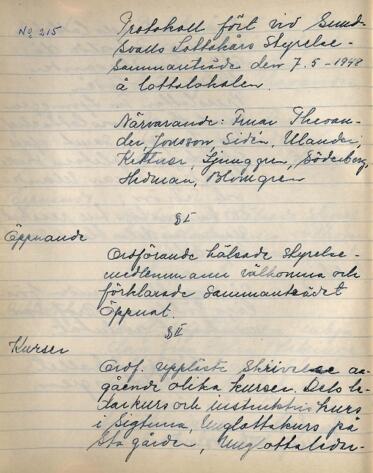 No 215
Protokoll fört vid Sund-
svalls Lottakårs Styrelse-
sammanträde den 7.5-1948
å lottalokalen.
Närvarande: Fruar Theoan-
der, Jonsson, Sidén, Ulander,
Ljunggren, Söderberg,
Hedman, Blomgren
§ I
Öppnande
Ordförande hälsade styrelse-
medlemmarna välkomna och
förklarade sammanträdet
öppnat.
§ II
Kurser
Ordf. uppläste skrivelse an-
gående olika kurser. Dels le-
darkurs och instruktris kurs
i Sigtuna, Unglottakurs på
Stagården, Unglottaledar-